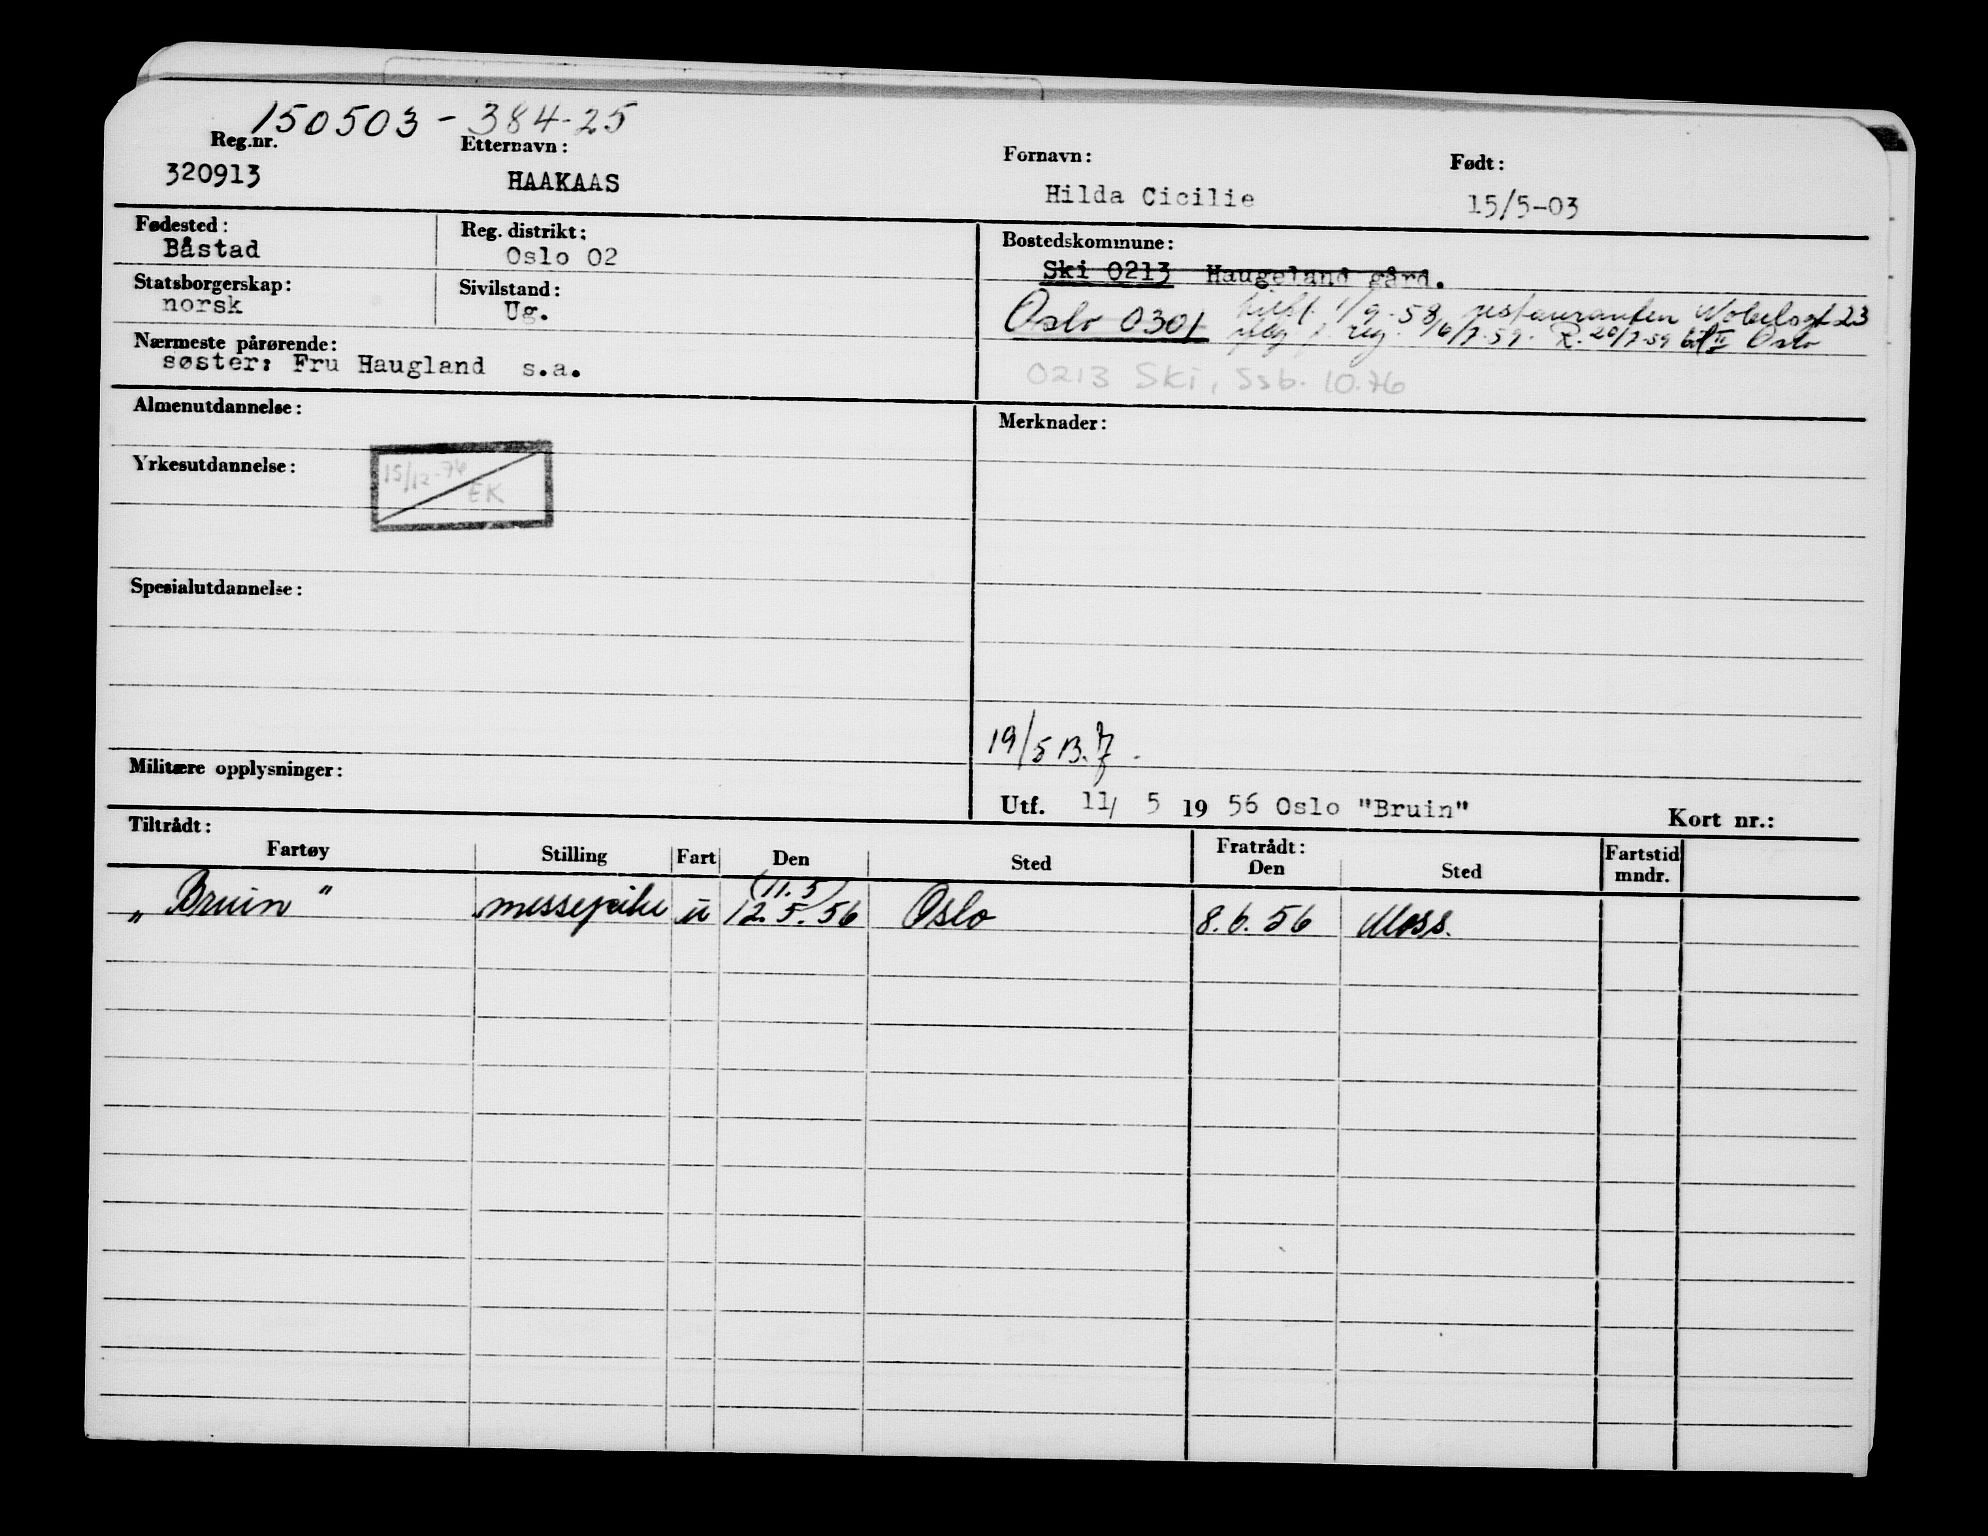 150503-384-25
Reg.nr. Etternavn: Fornavn: Født:
320913 HAAKAAS Hilda Cicilie 15/5-03
Fødested: Reg. distrikt: Bostedskommune:
Båstad Oslo 02 Ski 0213 Haugeland gård.
Statsborgerskap: Sivilstand:
norsk Ug.
Oslo 0301 1/9-58 restauranten 23
16/7-59. R. 20/7-59 II Oslo
Nærmeste pårørende:
søster: Fru Haugland s.a.
0213 Ski, Ssb. 10.76
Almenutdannelse: Merknader:
Yrkesutdannelse:
15/12-76
EK
Spesialutdannelse:
19/5 B.
Militære opplysninger:
Utf. 11/ 5 19 56 Oslo "Bruin" Kort nr.:
Tiltrådt: Fratrådt:
Fartøy Stilling Fart Den Sted Den Sted Fartstid mndr.
(11.5)
„Bruin" messepike u 12.5.56 Oslo 8.6.56 Moss.